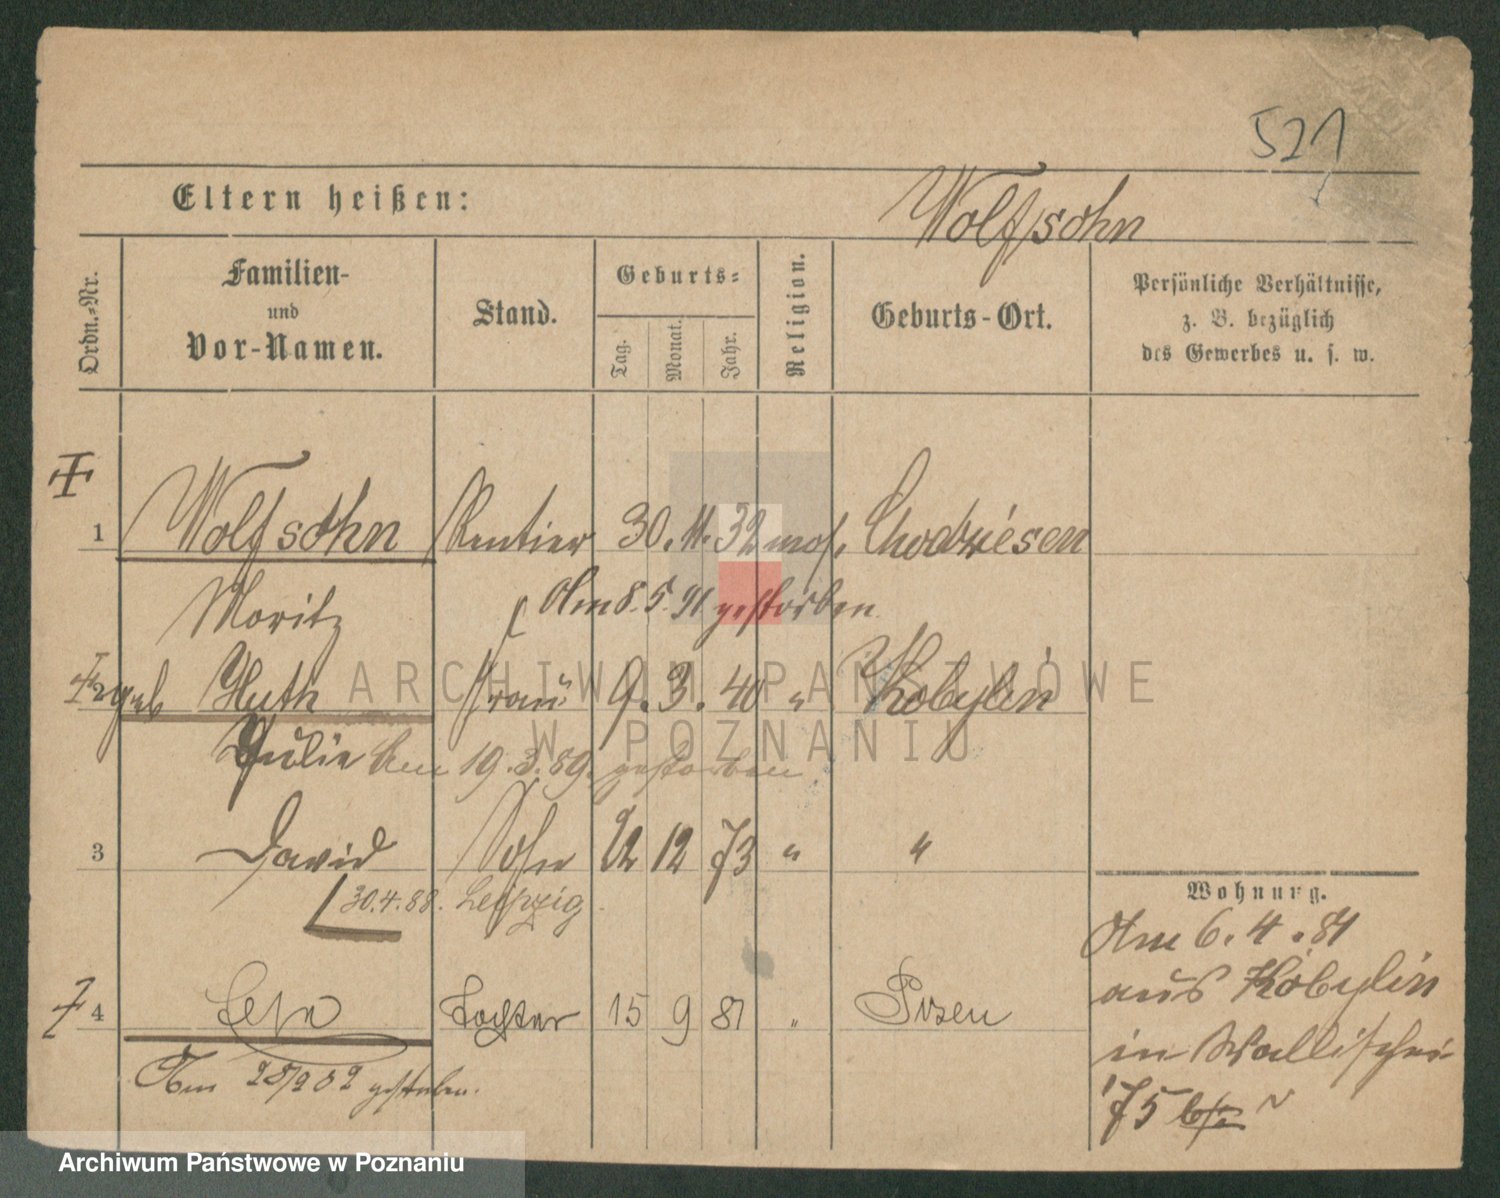 521
Eltern heißen:
Wolffsohn
Ordn.-Nr.
Familien-
und
Vor-Namen.
Stand.
Geburts-
Tag.
Monat.
Jahr.
Religion.
Geburts-Ort.
Persönliche Verhältnisse,
z. B. bezüglich
des Gewerbes u. s. w.
1 Wolfsohn Rentier 30. 11. 32 mos. Chodziesen
Moritz Am 8. 5. 91 gestorben
2 geb Huth Frau 9. 3. 40 " Kobylin
Julie Am 19. 3. 89. gestorben
3 David Sohn 22 12 73 " "
30. 4. 88. Leipzig.
Wohnung.
Am 6. 4. 81
aus Kobylin
in Wallischei
75
4 Tochter 15 9 81 " Posen
Am gestorben.
ARCHIWUM PAŃSTWOWE
W POZNANIU
Archiwum Państwowe w Poznaniu